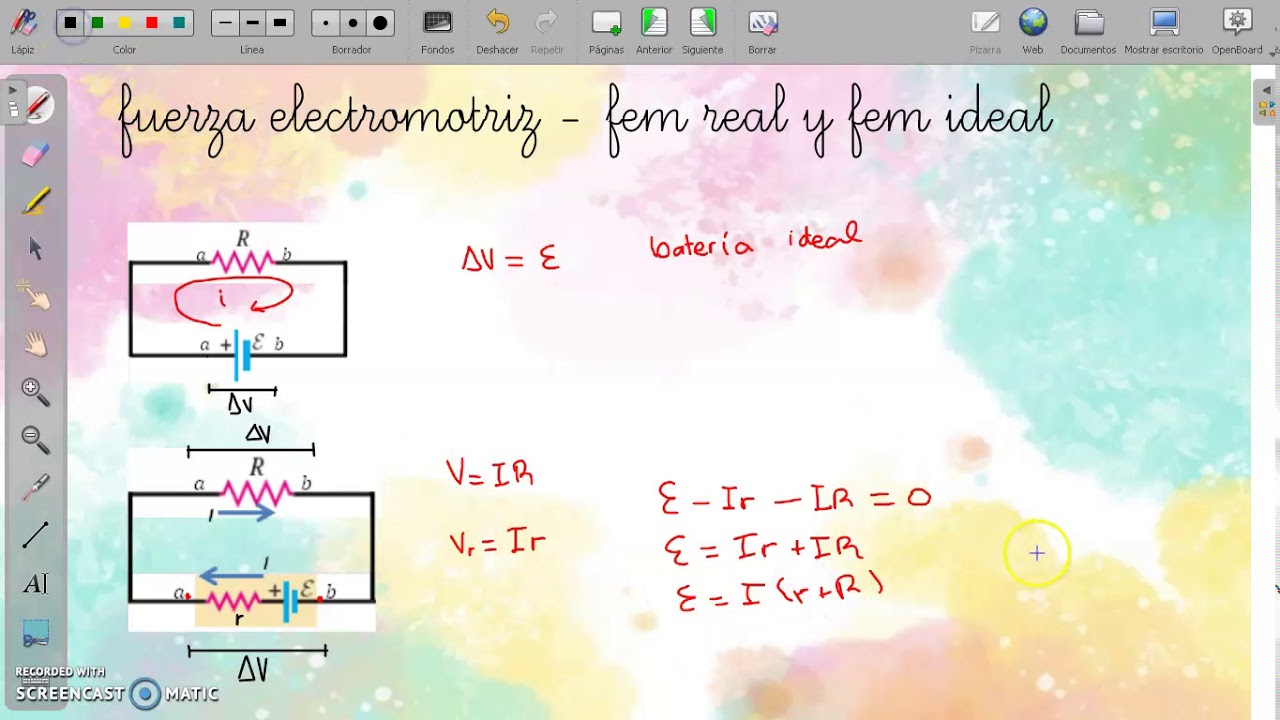 Lápiz Color Línea Borrador Fondos Deshacer Repetir Páginas Anterior Siguiente Borrar Pizarra Web Documentos Mostrar escritorio OpenBoard
fuerza electromotriz - fem real y fem ideal
R
a b
i
a + ε b
ΔV
ΔV = ε
batería ideal
ΔV
R
a b
I
I
a + ε b
r
ΔV
V = IR
Vr = Ir
ε - Ir - IR = 0
ε = Ir + IR
ε = I (r + R)
AI
RECORDED WITH
SCREENCAST MATIC